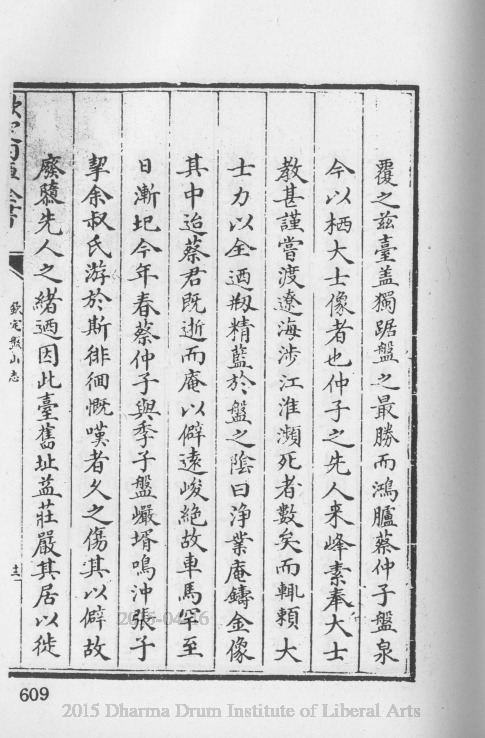 覆之兹臺盖獨踞盤之最勝而鴻臚蔡仲子盤泉
今以栖大士像者也仲子之先人来峰素奉大士
教甚謹嘗渡遼海涉江淮瀕死者數矣而輒頼大
士力以全迺剏精藍於盤之陰曰浄業庵鑄金像
其中迨蔡君既逝而庵以僻逺峻絶故車馬罕至
日漸圮今年春蔡仲子與季子盤巘壻鳴沖張子
挈余叔氏游於斯徘徊慨嘆者久之傷其以僻故
廢隳先人之緒迺因此臺舊址益莊嚴其居以徙
欽定盤山志
609
2015 Dharma Drum Institute of Liberal Arts